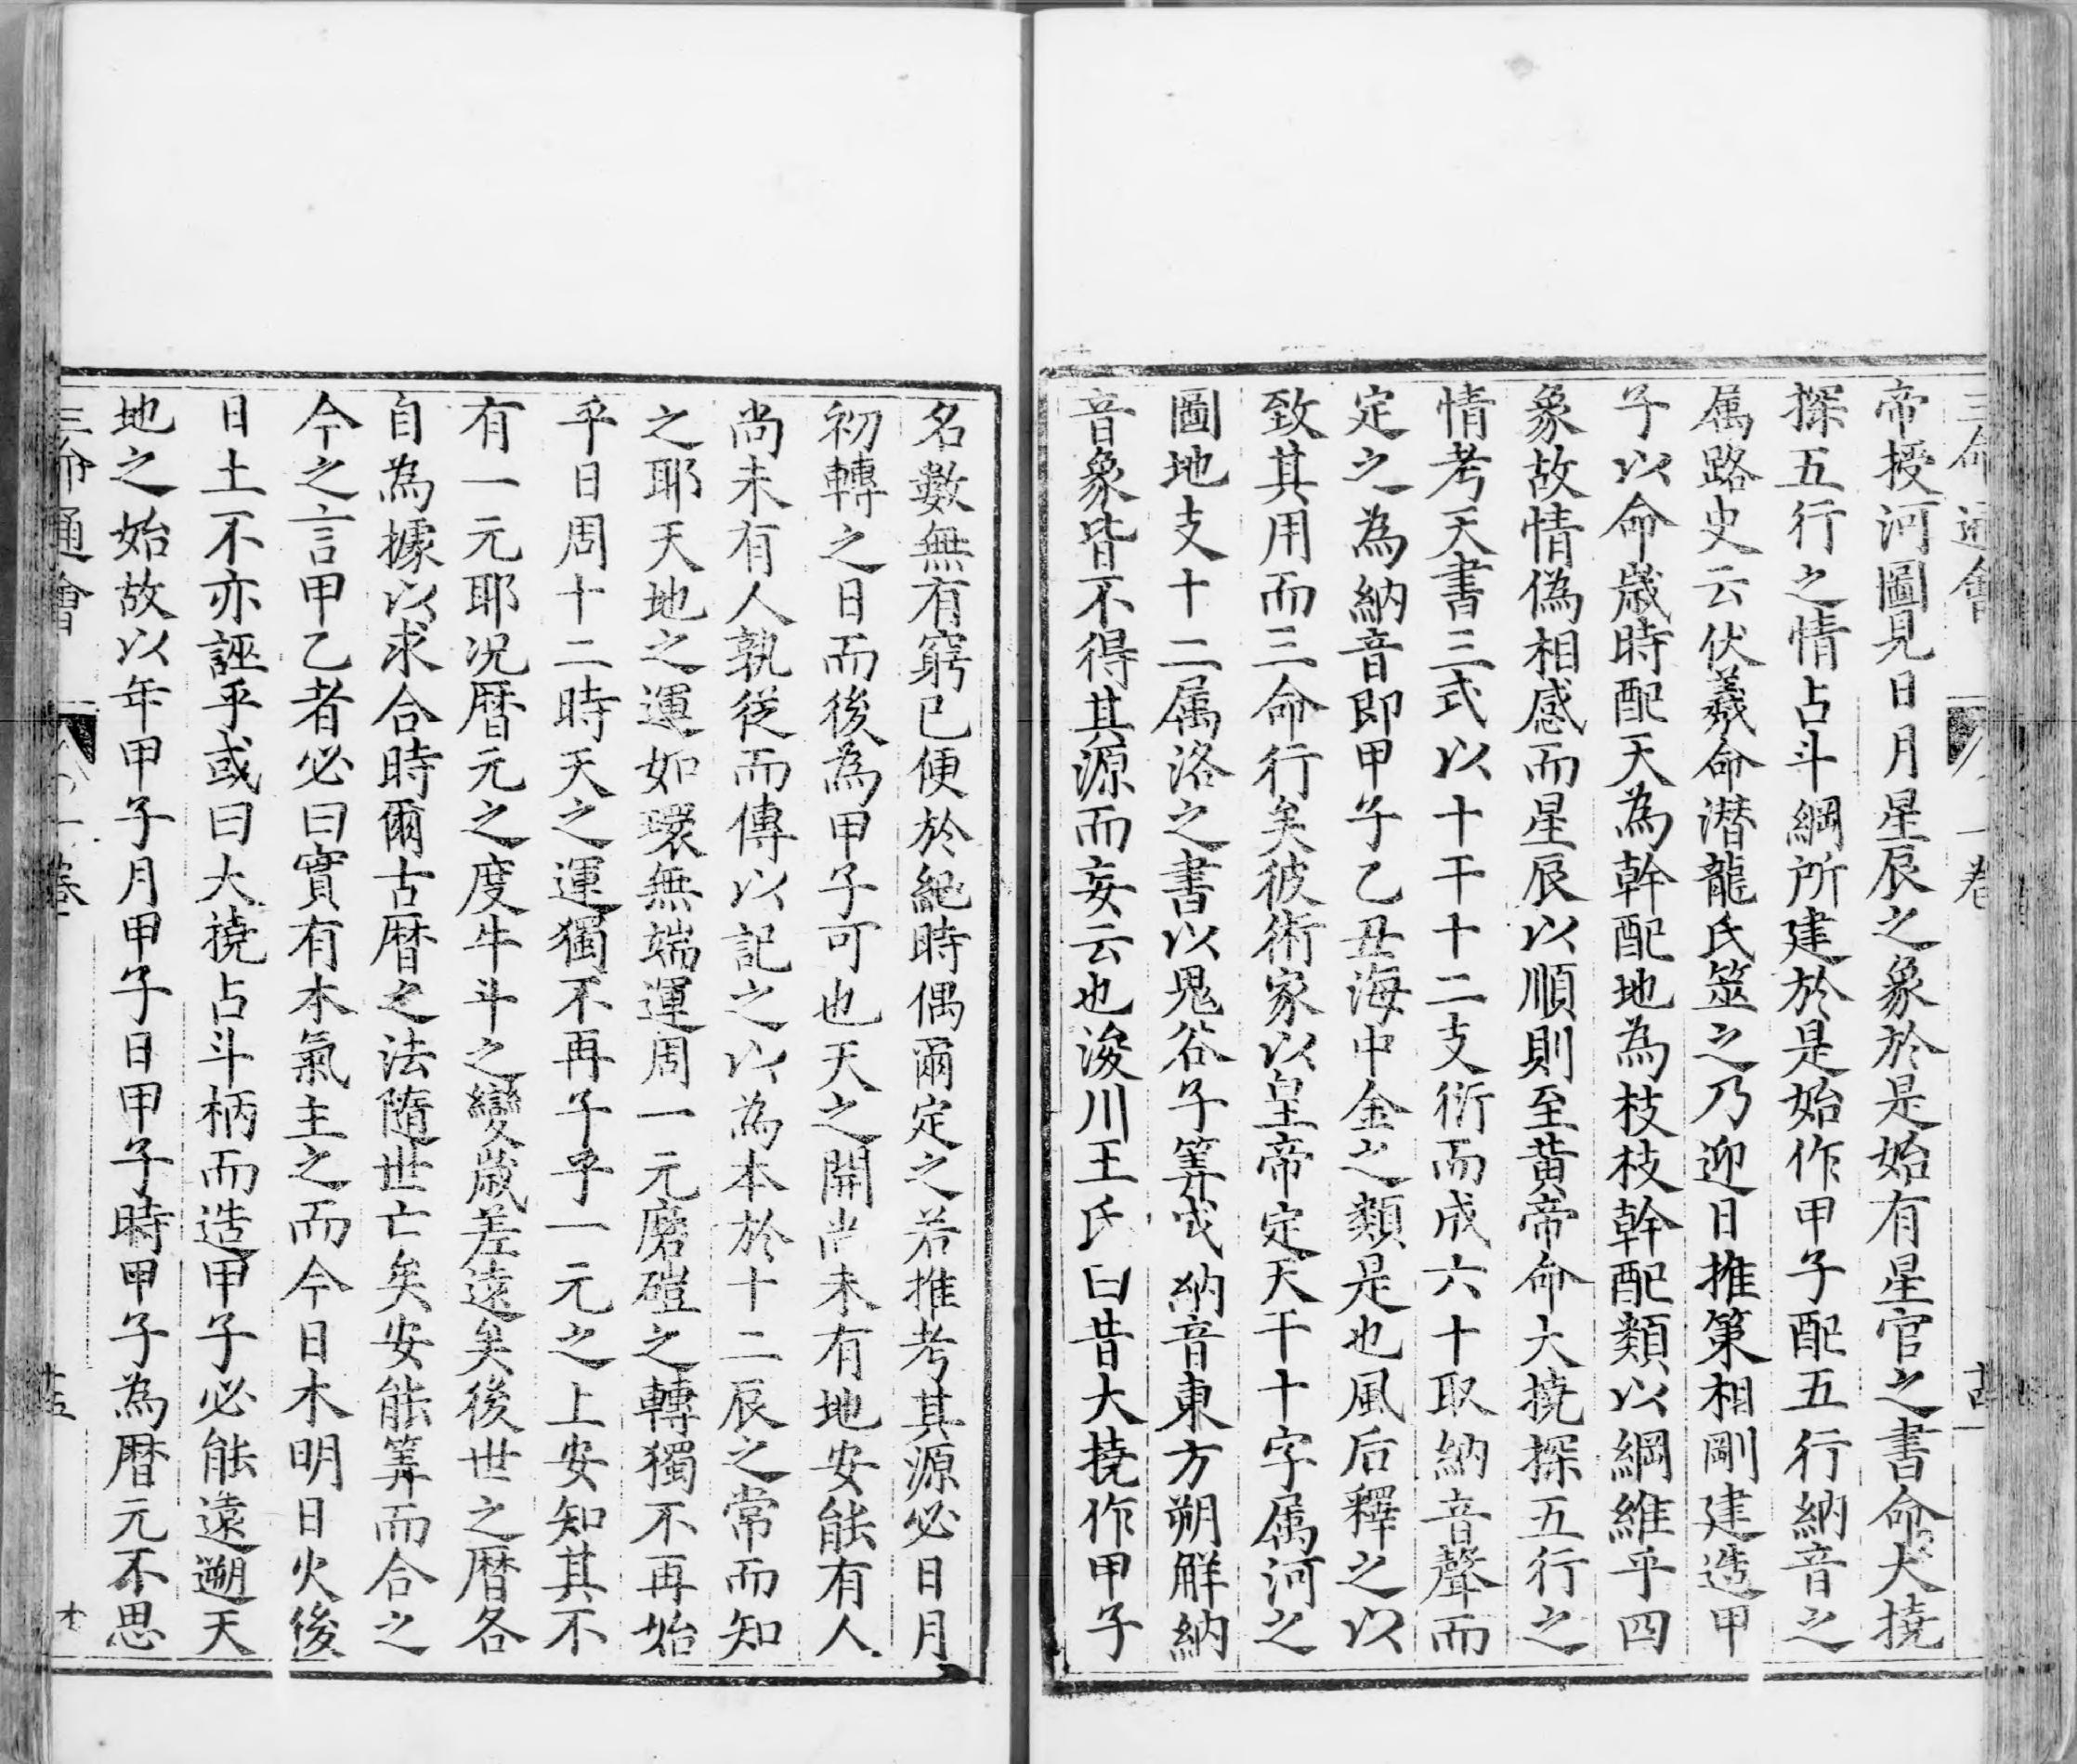 三命通會 一卷
帝授河圖見日月星辰之象於是始有星官之書命大撓
探五行之情占斗綱所建於是始作甲子配五行納音之
属路史云伏羲命潜龍氏筮之乃迎日推策相剛建造甲
子以命歲時配天為幹配地為枝枝幹配類以綱維乎四
象故情偽相感而星辰以順則至黄帝命大撓探五行之
情考天書三式以十干十二支衍而成六十取納音聲而
定之為納音即甲子乙丑海中金之類是也風后釋之以
致其用而三命行矣彼術家以皇帝定天干十字属河之
圖地支十二属洛之書以鬼谷子筭成納音東方朔觧納
音象皆不得其源而妄云也浚川王氏曰昔大撓作甲子
名數無有窮已便於紀時偶爾定之若推考其源必日月
初轉之日而後為甲子可也天之開尚未有地安能有人
尚未有人孰從而傳以記之以為本於十二辰之常而知
之耶天地之運如環無端運周一元磨磑之轉獨不再始
乎日周十二時天之運獨不再子乎一元之上安知其不
有一元耶况暦元之度牛斗之變歲差遠矣後世之暦各
自為據以求合時爾古暦之法隨世亡矣安能筭而合之
今之言甲乙者必曰實有木氣主之而今日木明日火後
日土不亦誣乎或曰大撓占斗柄而造甲子必能遠遡天
地之始故以年甲子月甲子日甲子時甲子為暦元不思
三命通會 卷